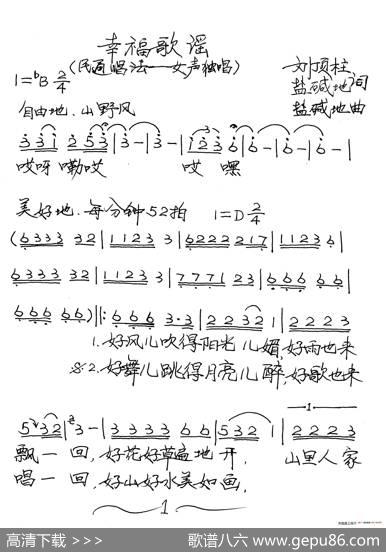 幸福歌谣
(民通唱法——女声独唱)
1=ᵇB 2/4
刘顶柱 词
盐碱地
自由地、山野风
盐碱地曲
3 3 1 2 5 3 | 3 - | 3 - | 1 2 3 6 | 6 - | 6 - | 6 - |
哎呀嘞哎 哎 嘿
美好地、每分钟52拍 1=D 2/4
(6333 32 | 1123 3 | 6222 217 | 1123 6 |
6333 32 | 1123 3 | 7771 23 | 666 66 |
666 66) ‖: 666 3·3 | 2232 1 | 2223
1.好风儿吹得阳光儿媚,好雨也来
※2.好舞儿跳得月亮儿醉,好歌也来
—1—
532 | 3 - | 3333 66 | 532 1 | 2223
飘一回,好花好草遍地开。 山里人家
唱一回,好山好水美如画,
1
高清下载 >>>
歌谱八六 www.gepu86.com